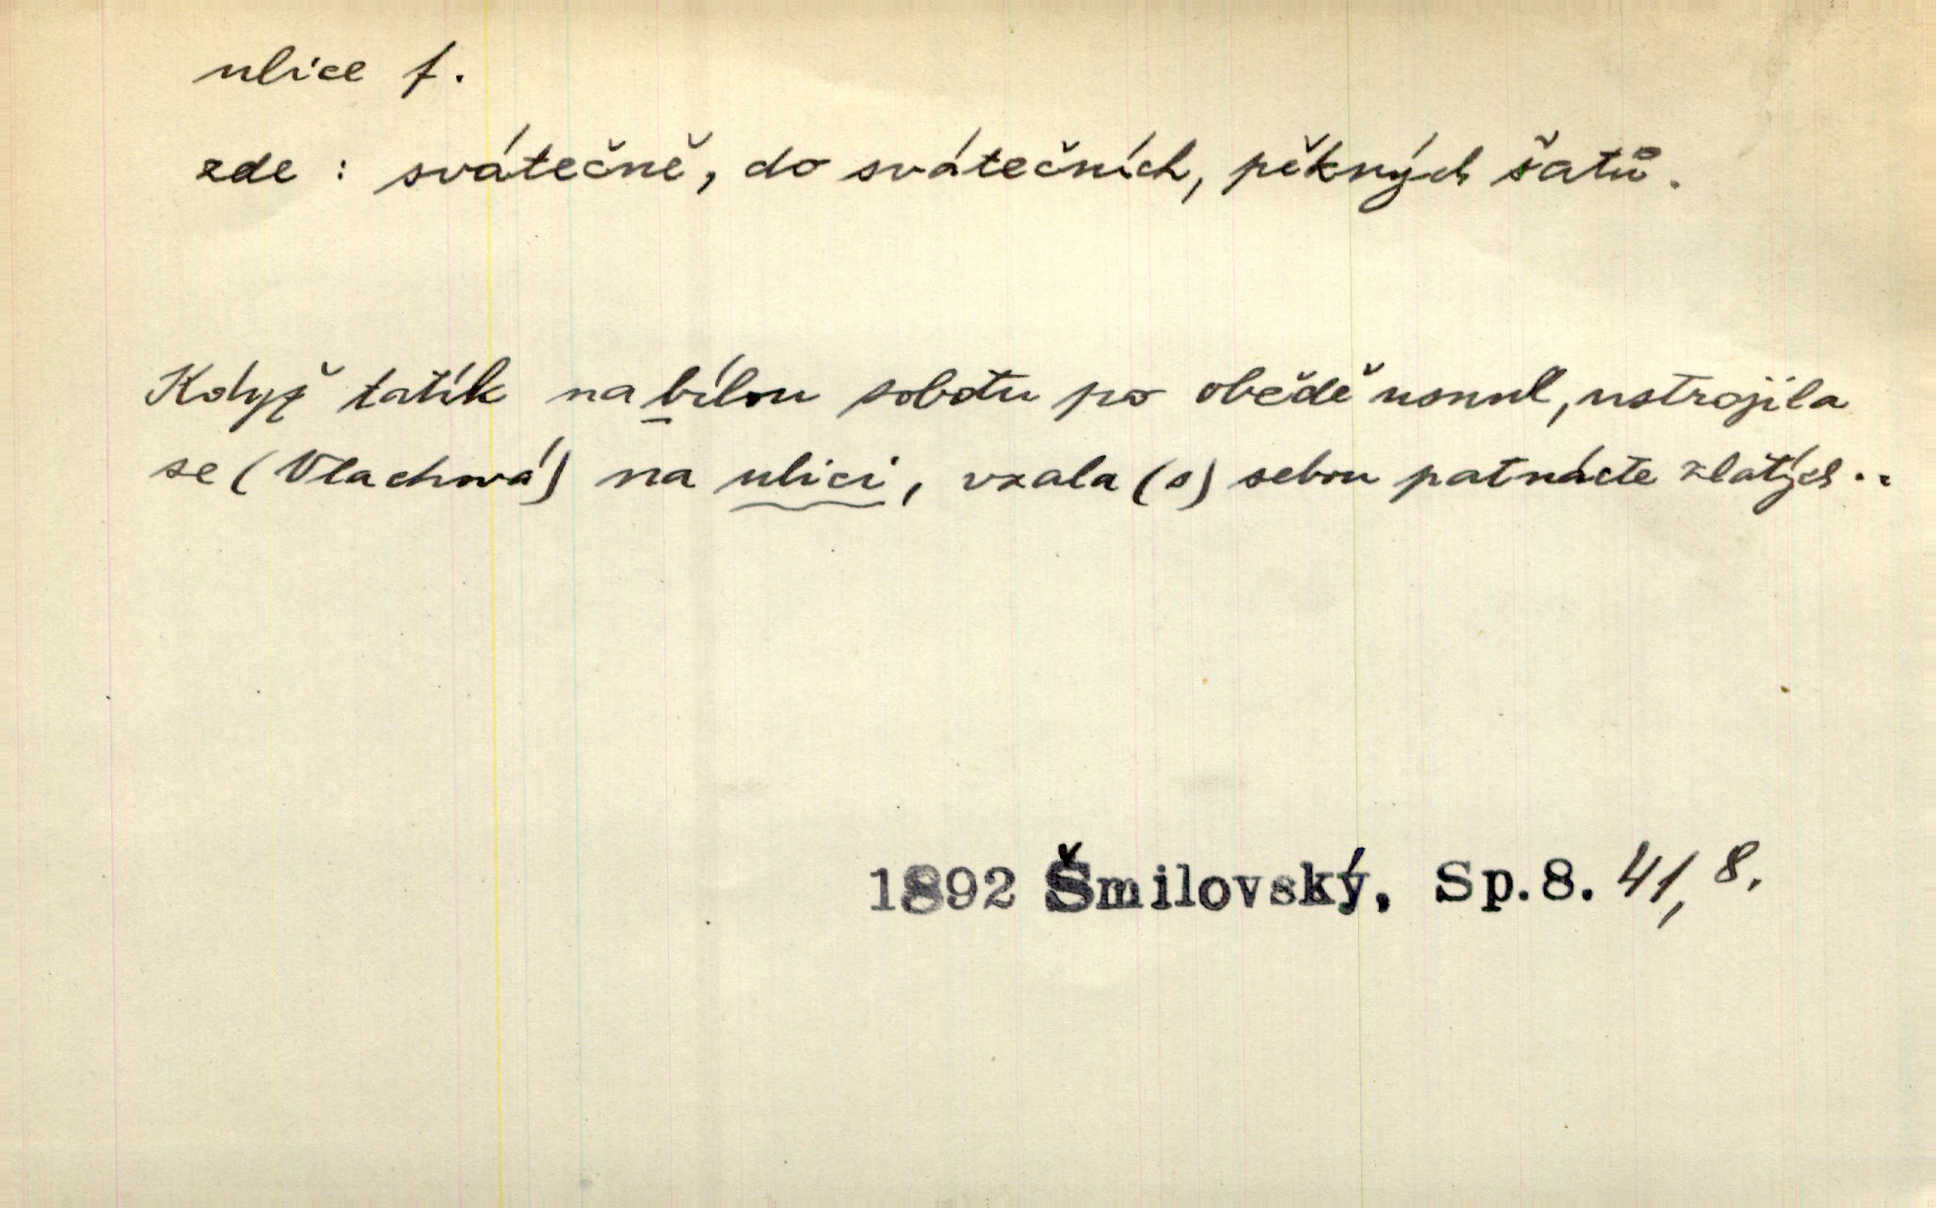 ulice f.
zde : svátečně, do svátečních, pěkných šatů.
Když tatík na bílou sobotu po obědě usnul, ustrojila
se (Vlachová) na ulici, vzala (s) sebou patnácte zlatých ..
1892 Šmilovský, Sp.8. 41, 8.